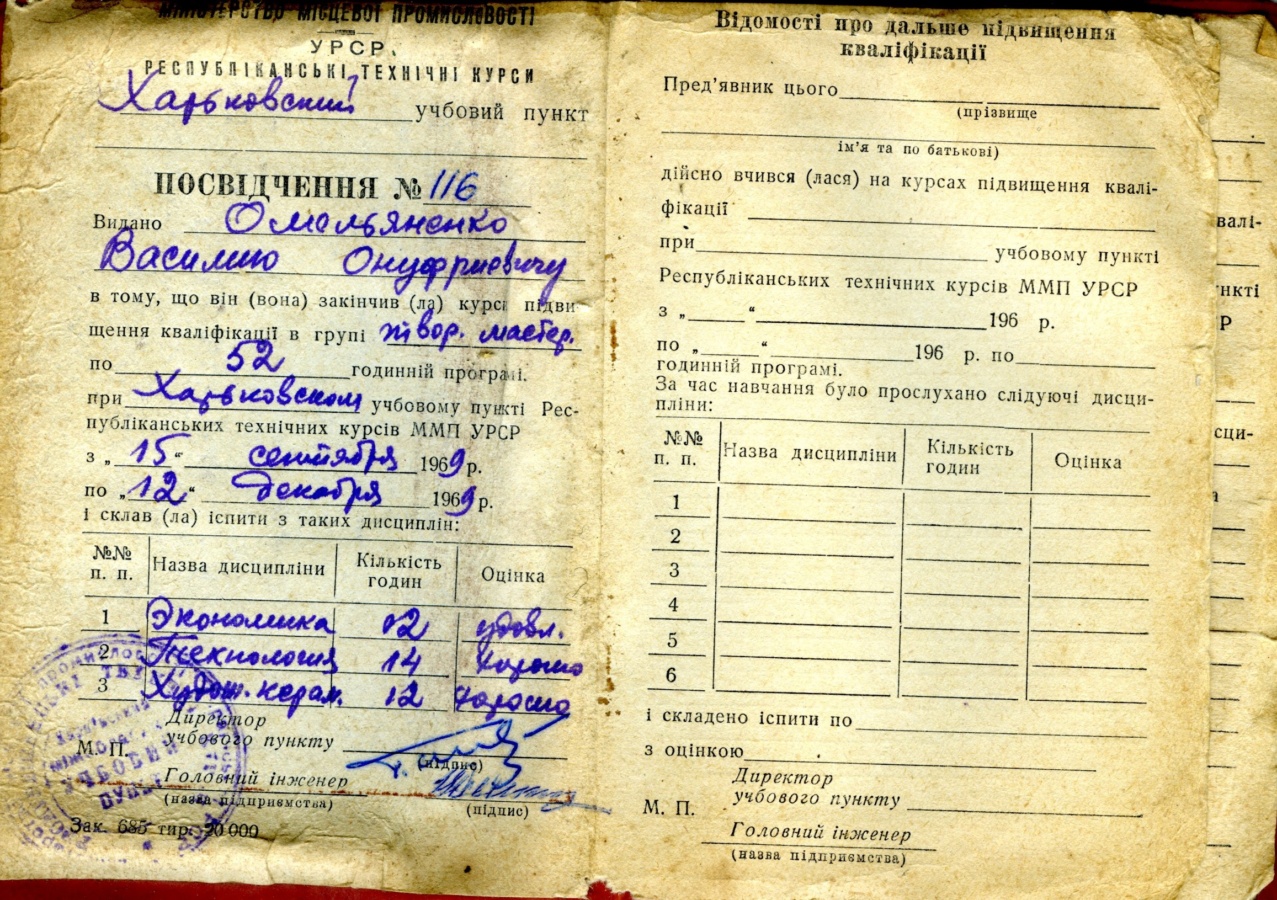 МІНІСТЕРСТВО МІСЦЕВОЇ ПРОМИСЛОВОСТІ
УРСР.
РЕСПУБЛІКАНСЬКІ ТЕХНІЧНІ КУРСИ
Харьковский учбовий пункт
ПОСВІДЧЕННЯ № 116
Видано Омельяненко
Василию Онуфриевичу
в тому, що він (вона) закінчив (ла) курсі підви
щення кваліфікації в групі твор. мастер.
по 52 годинній програмі.
при Харьковском учбовому пункті Рес-
публіканських технічних курсів ММП УРСР
з „15“ сентября 1969 р.
по „12“ декабря 1969 р.
і склав (ла) іспити з таких дисциплін:
№№ п. п. Назва дисципліни Кількість годин Оцінка
1 Экономика 02 удовл.
2 Технология 14 хорошо
3 Худож. керам. 12 хорошо
Директор
учбового пункту
М. П. (підпис)
Головний інженер
(назва підприємства) (підпис)
Зак. 685 тир. 20 000
УЧБОВИЙ
ПУНКТ
Відомості про дальше підвищення
кваліфікації
Пред’явник цього
(прізвище
ім’я та по батькові)
дійсно вчився (лася) на курсах підвищення квалі-
фікації
при учбовому пункті
Республіканських технічних курсів ММП УРСР
з „ “ 196 р.
по „ “ 196 р. по
годинній програмі.
За час навчання було прослухано слідуючі дисци-
пліни:
№№ п. п. Назва дисципліни Кількість годин Оцінка
1
2
3
4
5
6
і складено іспити по
з оцінкою
Директор
учбового пункту
М. П.
Головний інженер
(назва підприємства)
валі-
нкті
Р
сци-